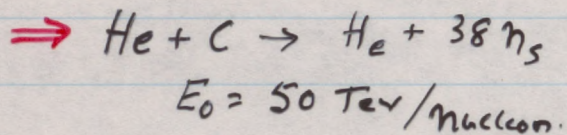 ⇒ He + C → He + 38 ns
E₀ = 50 Tev/nucleon.